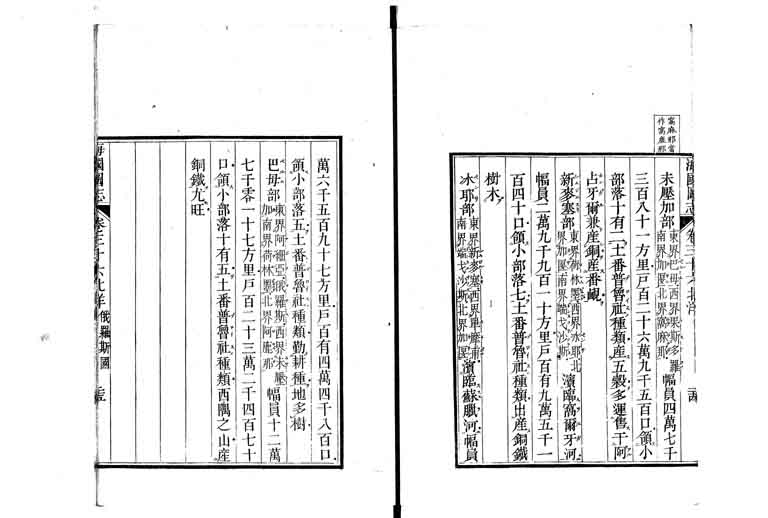 海國圖志 卷三十六 北洋
未壓加部東界巴毋西界果斯多羅
南界加匽北界窩麻那幅員四萬七千
三百八十一方里戶百二十六萬九千五百口領小
部落十有二土番普魯社種類產五穀多運售于阿
占牙爾兼產銅產番覷
新麥塞部東界荷林墨西界水耶北
界加匽南界端戈沙斯濱臨窩爾牙河
幅員二萬九千九百一十方里戶百有九萬五千一
百四十口領小部落七土番普魯社種類出產銅鐵
樹木
水耶部東界新麥塞西界
南界端戈沙斯北界加匽濱臨蘇臘河幅員
萬六千五百九十七方里戶百有四萬四千八百口
領小部落五土番普魯社種類勤耕種地多樹
巴毋部東界阿細亞俄羅斯西界未壓
加南界荷林墨北界阿鹿那幅員十二萬
七千零一十七方里戶百二十三萬二千四百七十
口領小部落十有五土番普魯社種類西隅之山產
銅鐵尢旺
海國圖志 卷三十六 北洋 俄羅斯國